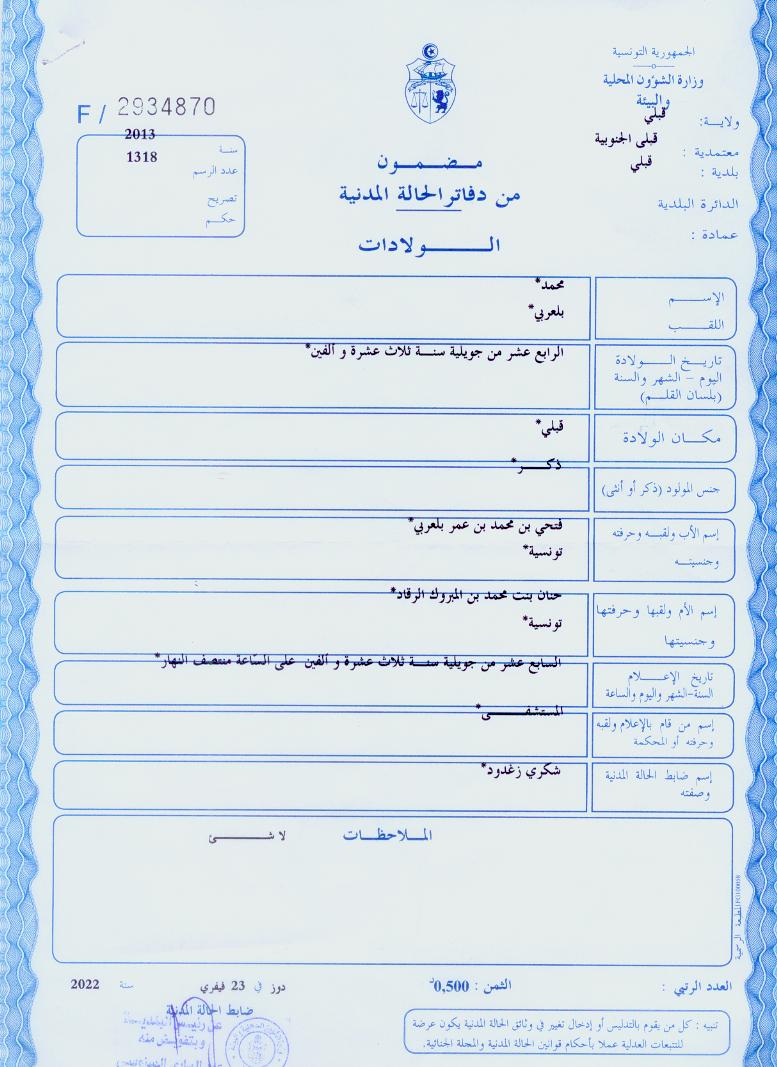 الجمهورية التونسية
وزارة الشؤون المحلية
والبيئة
ولاية: قبلي
معتمدية : قبلى الجنوبية
بلدية : قبلي
الدائرة البلدية
عمادة :
F / 2934870
سنة 2013
عدد الرسم 1318
تصريح
حكم
مضمون
من دفاتر الحالة المدنية
الولادات
الإسم محمد*
اللقب بلعربي*
تاريخ الولادة
اليوم – الشهر والسنة
(بلسان القلم)
الرابع عشر من جويلية سنة ثلاث عشرة و ألفين*
مكان الولادة قبلي*
جنس المولود (ذكر أو أنثى) ذكر*
إسم الأب ولقبه وحرفته
وجنسيته
فتحي بن محمد بن عمر بلعربي*
تونسية*
إسم الأم ولقبها وحرفتها
وجنسيتها
حنان بنت محمد بن المبروك الرقاد*
تونسية*
تاريخ الإعلام
السنة-الشهر واليوم والساعة
السابع عشر من جويلية سنة ثلاث عشرة و ألفين على السّاعة منتصف النهار*
إسم من قام بالإعلام ولقبه
وحرفته أو المحكمة
المستشفى*
إسم ضابط الحالة المدنية
وصفته
شكري زغدود*
الملاحظات لا شئ
المطبعة الرسمية
العدد الرتبي :
الثمن : 0,500د
دوز في 23 فيفري سنة 2022
ضابط الحالة المدنية
عن رئيس البلدية
وبتفويض منه
تنبيه : كل من يقوم بالتدليس أو إدخال تغيير في وثائق الحالة المدنية يكون عرضة
للتتبعات العدلية عملا بأحكام قوانين الحالة المدنية والمجلة الجنائية.